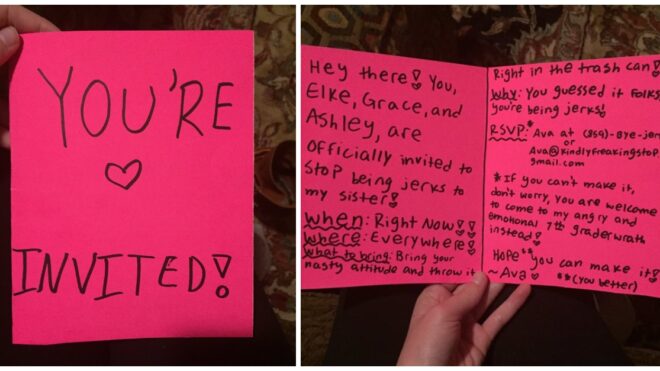 YOU'RE
♡
INVITED!
Hey there! You,
Elke, Grace, and
Ashley, are
Officially invited to
Stop being jerks to
my sister!
When: Right Now!!
Where: Everywhere!
What to bring: Bring your
nasty attitude and throw it
Right in the trash can!
Why: You guessed it Folks
you're being jerks!
RSVP:* Ava at (859)-Bye-jer
or
Ava@kindlyfreakingstop
gmail.com
*If you can't make it,
don't worry, you are welcome
to come to my angry and
emotional 7th grader wrath
instead!
Hope** you can make it!
~Ava♡ **(you better)